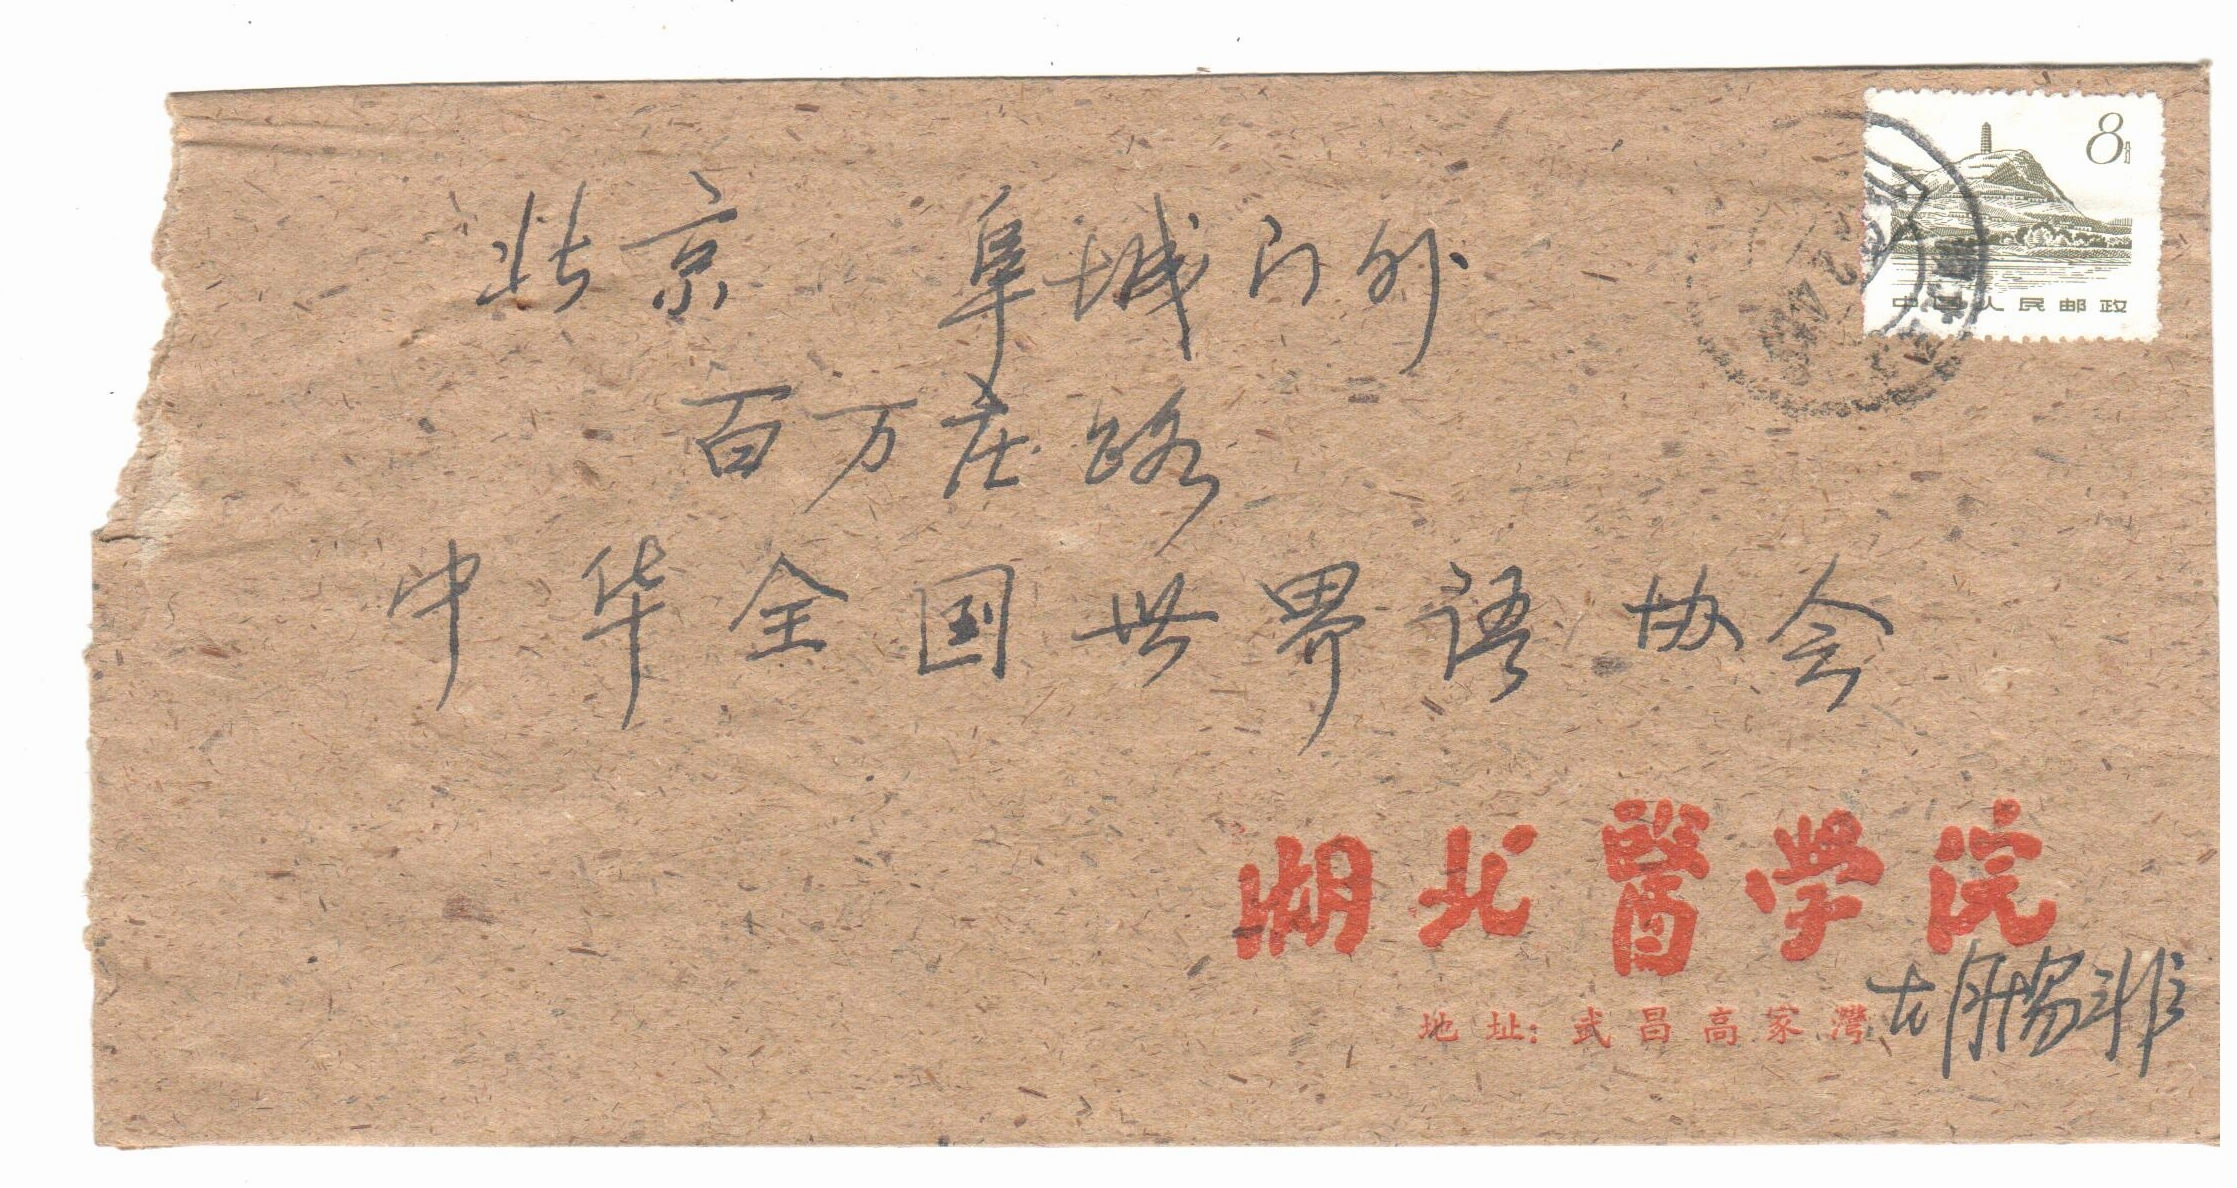 8分
中国人民邮政
北京 阜城门外
百万庄路
中华全国世界语协会
湖北醫学院
地址:武昌高家灣